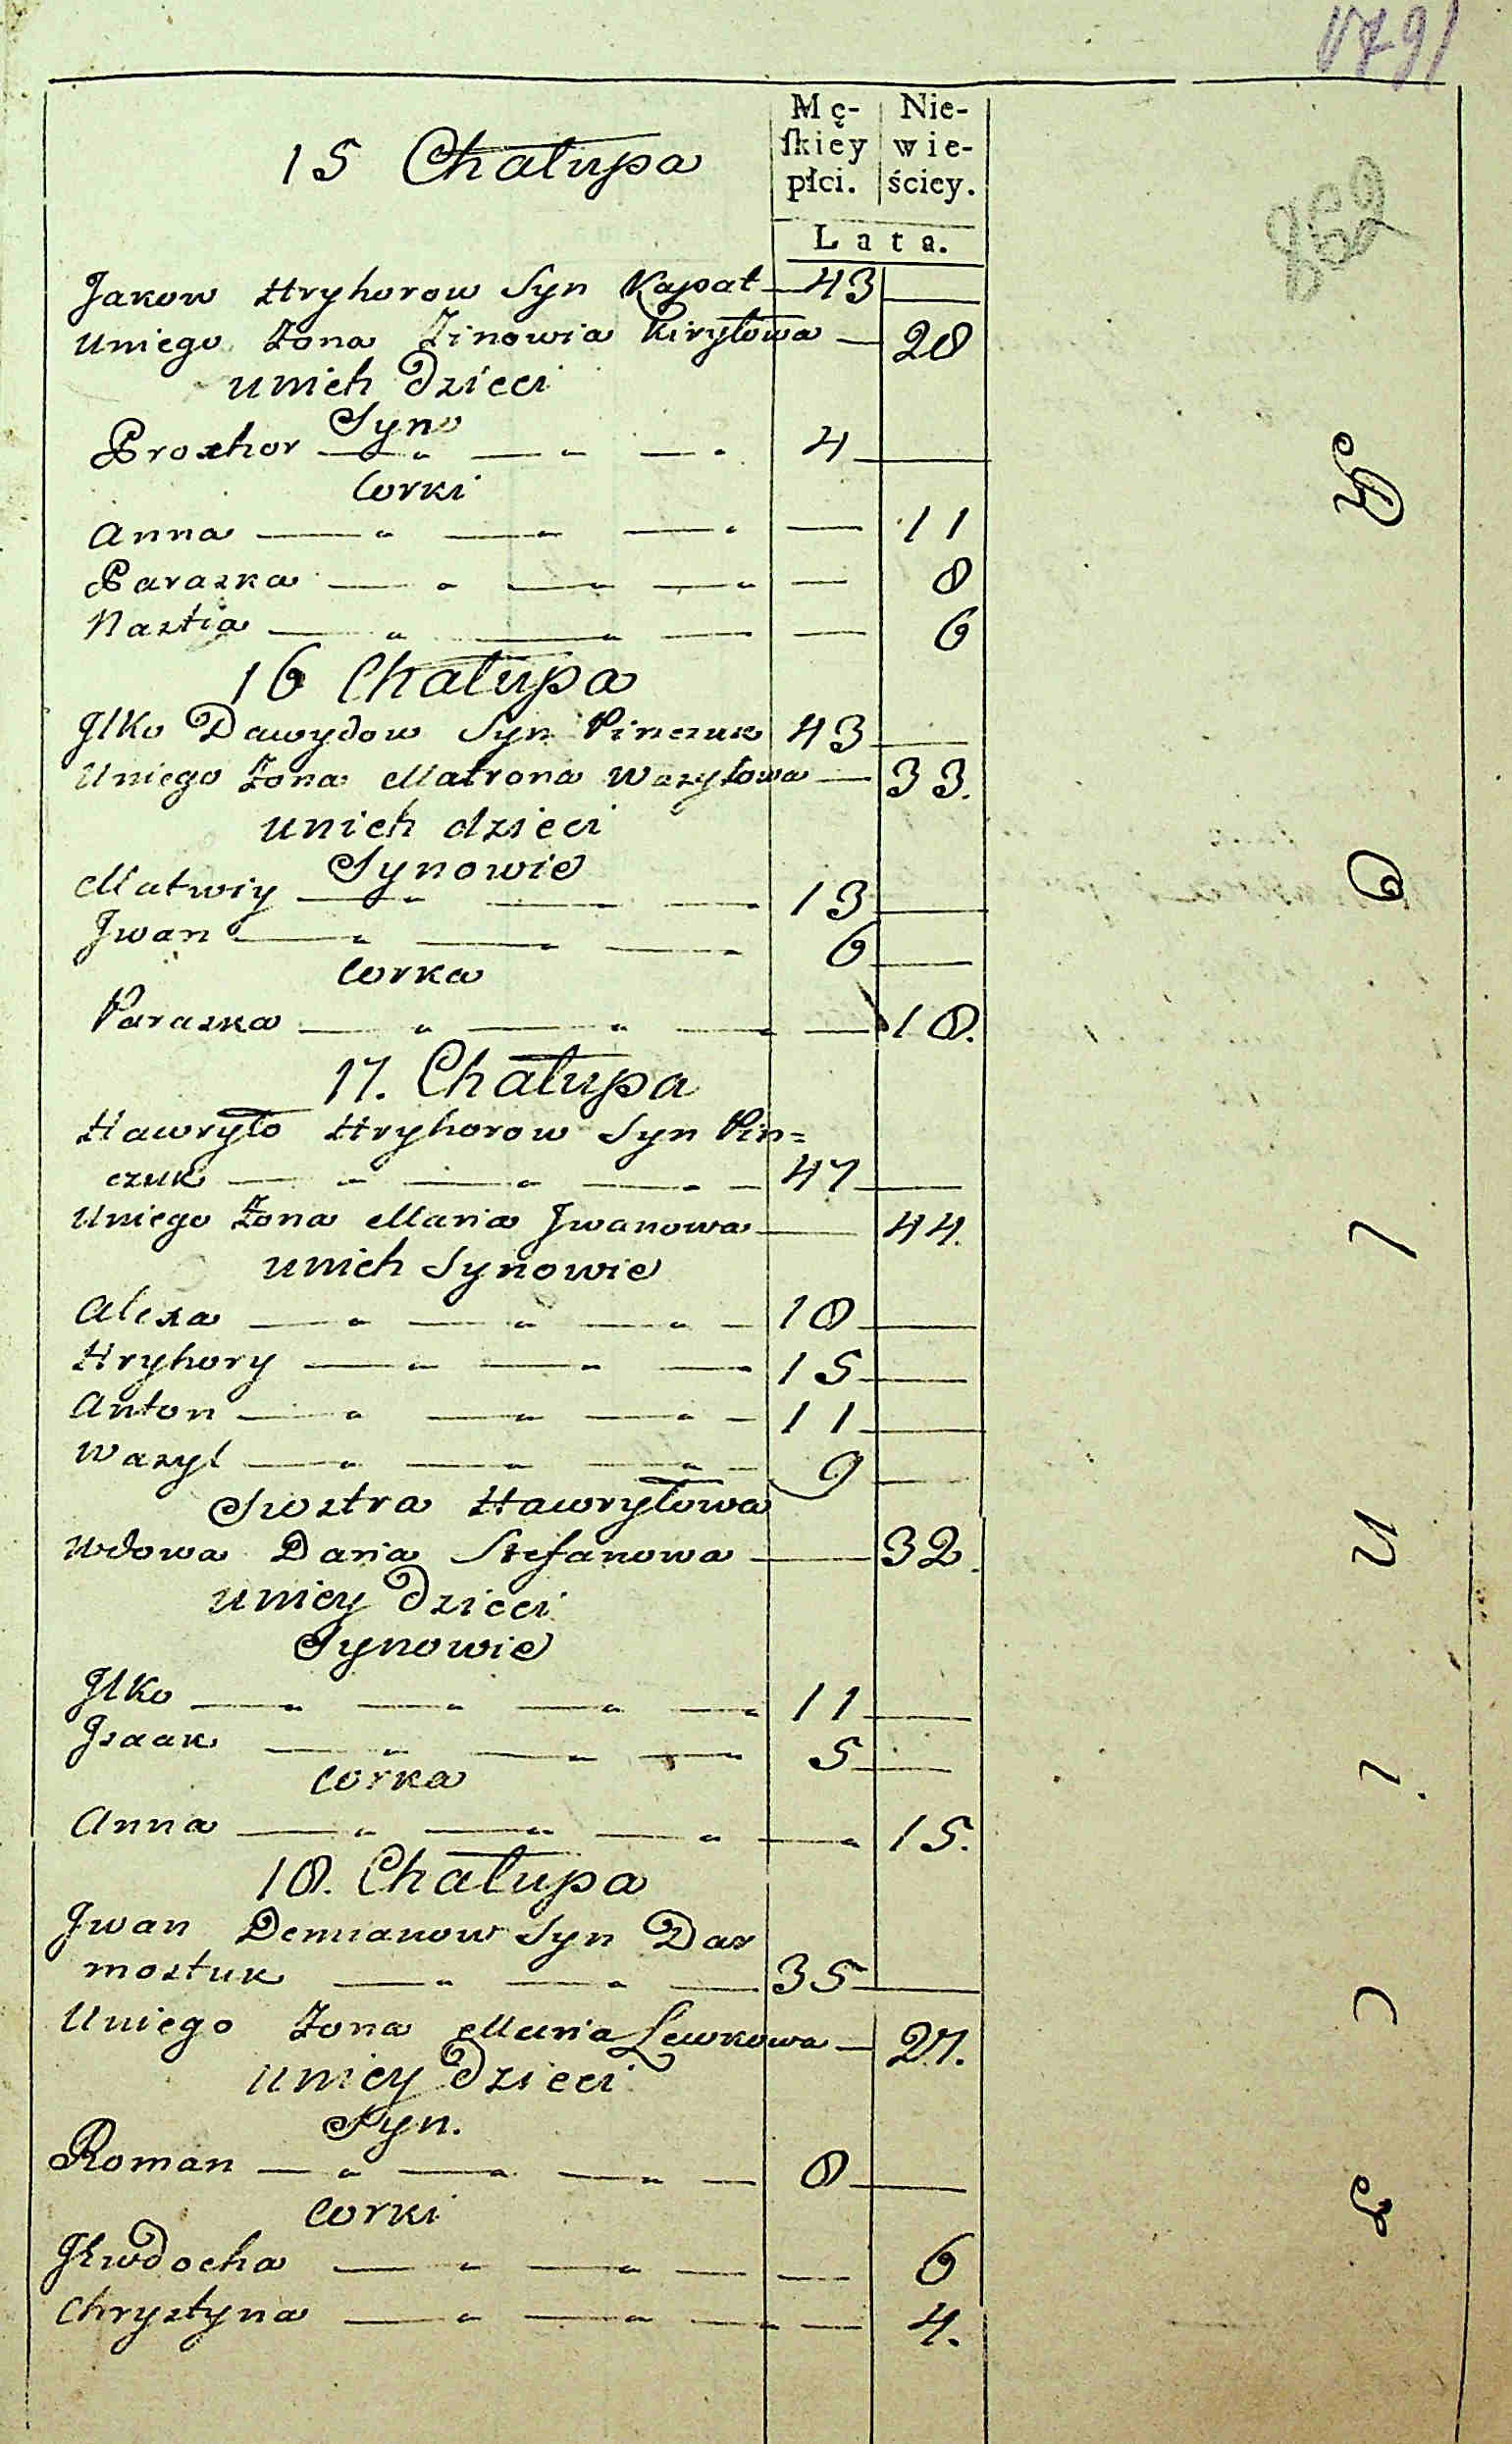 1791
Mę- Nie-
15 Chałupa ſkiey wie-
płci. ściey.
862
Lata.
Jakow Hryhorow Syn Kapat 43
Uniego Żona Zinowia Kiryłowa 28
unich Dzieci
Syn
Prochor 4
Corki
Anna 11
Paraska 8
Nastia 6
16 Chałupa
Jlko Dawydow Syn Pinczuk 43
Uniego Żona Matrona Wasyłowa 33.
unich dzieci
Synowie
Matwiy 13
Jwan 6
Corka
Paraska 18.
17. Chałupa
Hawryło Hryhorow Syn Pin=
czuk 47
Uniego Żona Maria Jwanowa 44.
unich Synowie
Alexa 18
Hryhory 15
Anton 11
Wasyl 9
Siostra Hawryłowa
Wdowa Daria Stefanowa 32.
uniey Dzieci
Synowie
Jlko 11
Jsaak 5
Corka
Anna 15.
18. Chałupa
Jwan Demianow Syn Dar
mostuk 35
Uniego Żona Maria Lewkowa 27.
uniey Dzieci
Syn.
Roman 8
Corki
Jewdocha 6
Chrystyna 4.